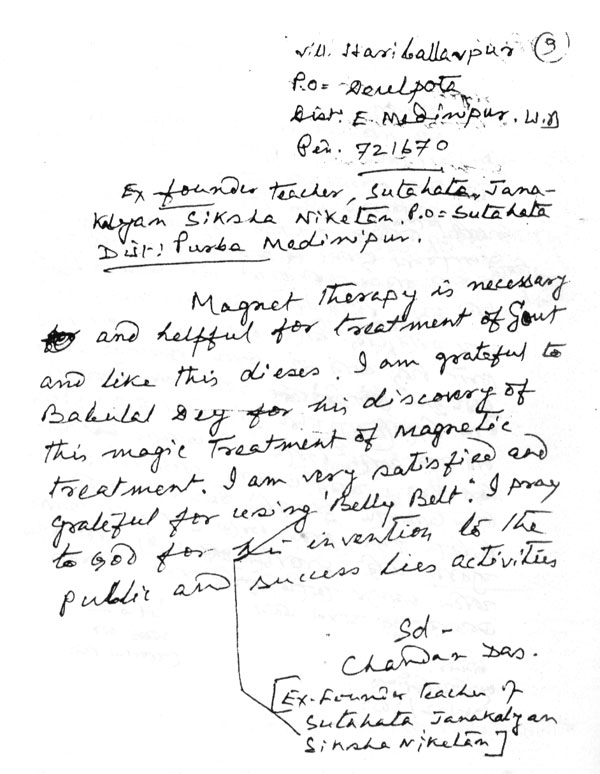 Vill. Hariballavpur (9)
P.O = Deulpota
Dist. E. Medinipur. W.B
Pin. 721670
Ex founder teacher, Sutahata, Jana-
Kalyan Siksha Niketan. P.O = Sutahata
Dist: Purba Medinipur.
Magnet Therapy is necessary
and helpful for treatment of Gout
and like this dieses. I am grateful to
Babulal Dey for his discovery of
this magic Treatment of Magnetic
treatment. I am very satisfied and
grateful for using 'Belly Belt'. I pray
to God for his invention to the
public and success lies activities
Sd -
Chandan Das.
[Ex-Founder teacher of
Sutahata Janakalyan
Siksha Niketan]